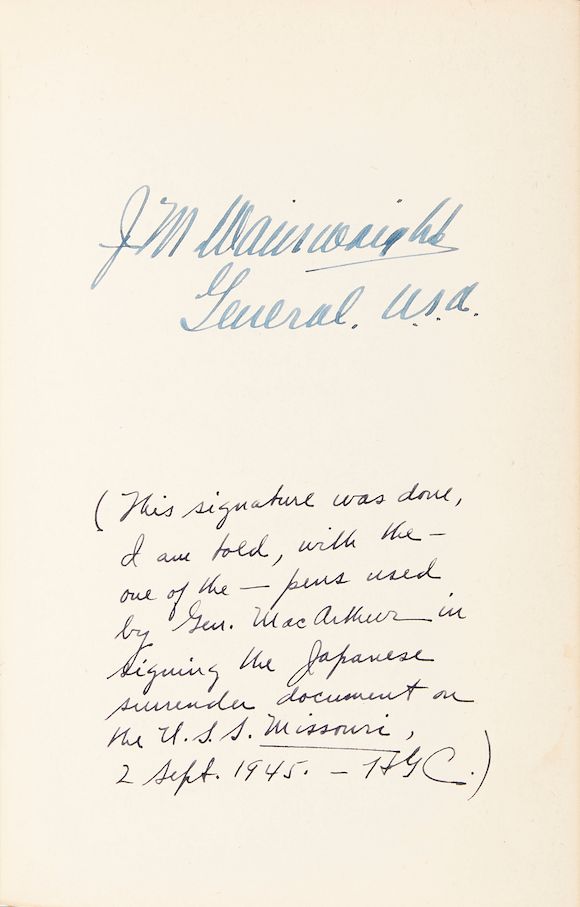 J M Wainwright
General. U.S.A.
(This signature was done,
I am told, with the —
one of the — pens used
by Gen. MacArthur in
signing the Japanese
surrender document on
the U.S.S. Missouri,
2 Sept. 1945. — HGC.)